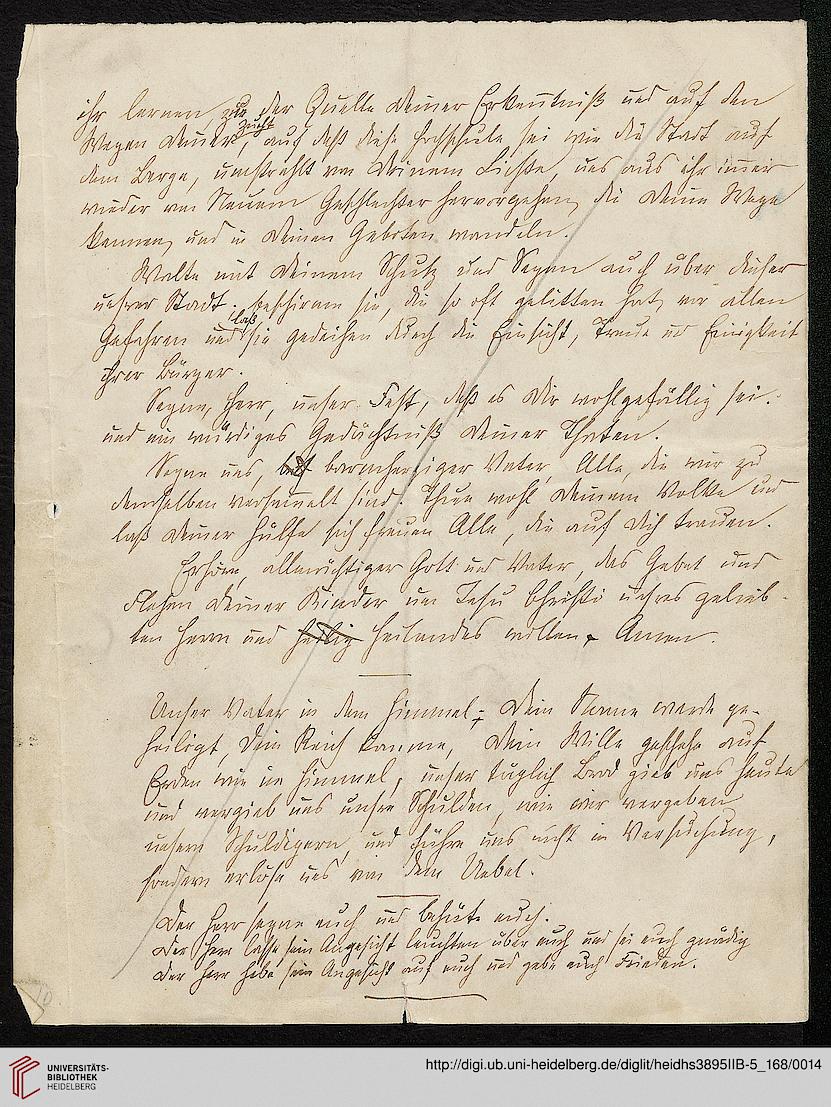 ihr lernen, zu der Quelle Deiner Erkenntniß und auf den
Wegen Deiner Zucht, auf daß diese Hochschule sei wie die Stadt auf
dem Berge, umstrahlt von Deinem Lichte, und aus ihr immer
wieder von Neuem Geschlechter hervorgehen, die Deine Wege
kennen, und in Deinen Geboten wandeln.
Walte mit Deinem Schutz und Segen auch über dieser
unsrer Stadt; beschirme sie, die so oft gelitten hat, vor allen
Gefahren und laß sie gedeihen durch die Einsicht, Treue und Einigkeit
ihrer Bürger.
Segne, Herr, unser Fest, daß es Dir wohlgefällig sei
und ein würdiges Gedächtniß Deiner Thaten.
Segne uns, barmherziger Vater, Alle, die wir zu
demselben versammelt sind. Thue wohl Deinem Volke und
laß Deiner Hülfe sich freuen Alle, die auf Dich trauen.
Erhöre, allmächtiger Gott und Vater, das Gebet und
Flehen Deiner Kinder um Jesu Christi unsres gelieb-
ten Herrn und heilig Heilandes willen. Amen.
Unser Vater in dem Himmel; Dein Name werde ge-
heiligt, Dein Reich komme, Dein Wille geschehe auf
Erden wie im Himmel, unser täglich Brod gieb uns heute
und vergieb uns unsre Schulden, wie wir vergeben
unsern Schuldigern, und führe uns nicht in Versuchung,
sondern erlöse uns von dem Uebel.
Der Herr segne euch und behüte euch.
Der Herr lasse sein Angesicht leuchten über euch und sei euch gnädig
Der Herr hebe sein Angesicht auf euch und gebe euch Frieden.
10
UNIVERSITÄTS-
BIBLIOTHEK
HEIDELBERG
http://digi.ub.uni-heidelberg.de/diglit/heidhs3895IIB-5_168/0014